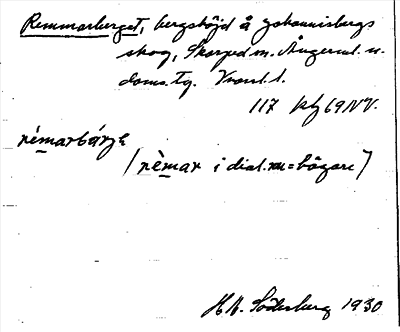 Remmarberget, bergshöjd å Johannisbergs
skog, Skorped sn. Ångerml. n.
doms. Tg. Vrånl.
117 kbg 69 NV.
rèmarbárjə
(rèmar i dial. = bågare)
H N. Söderberg 1930